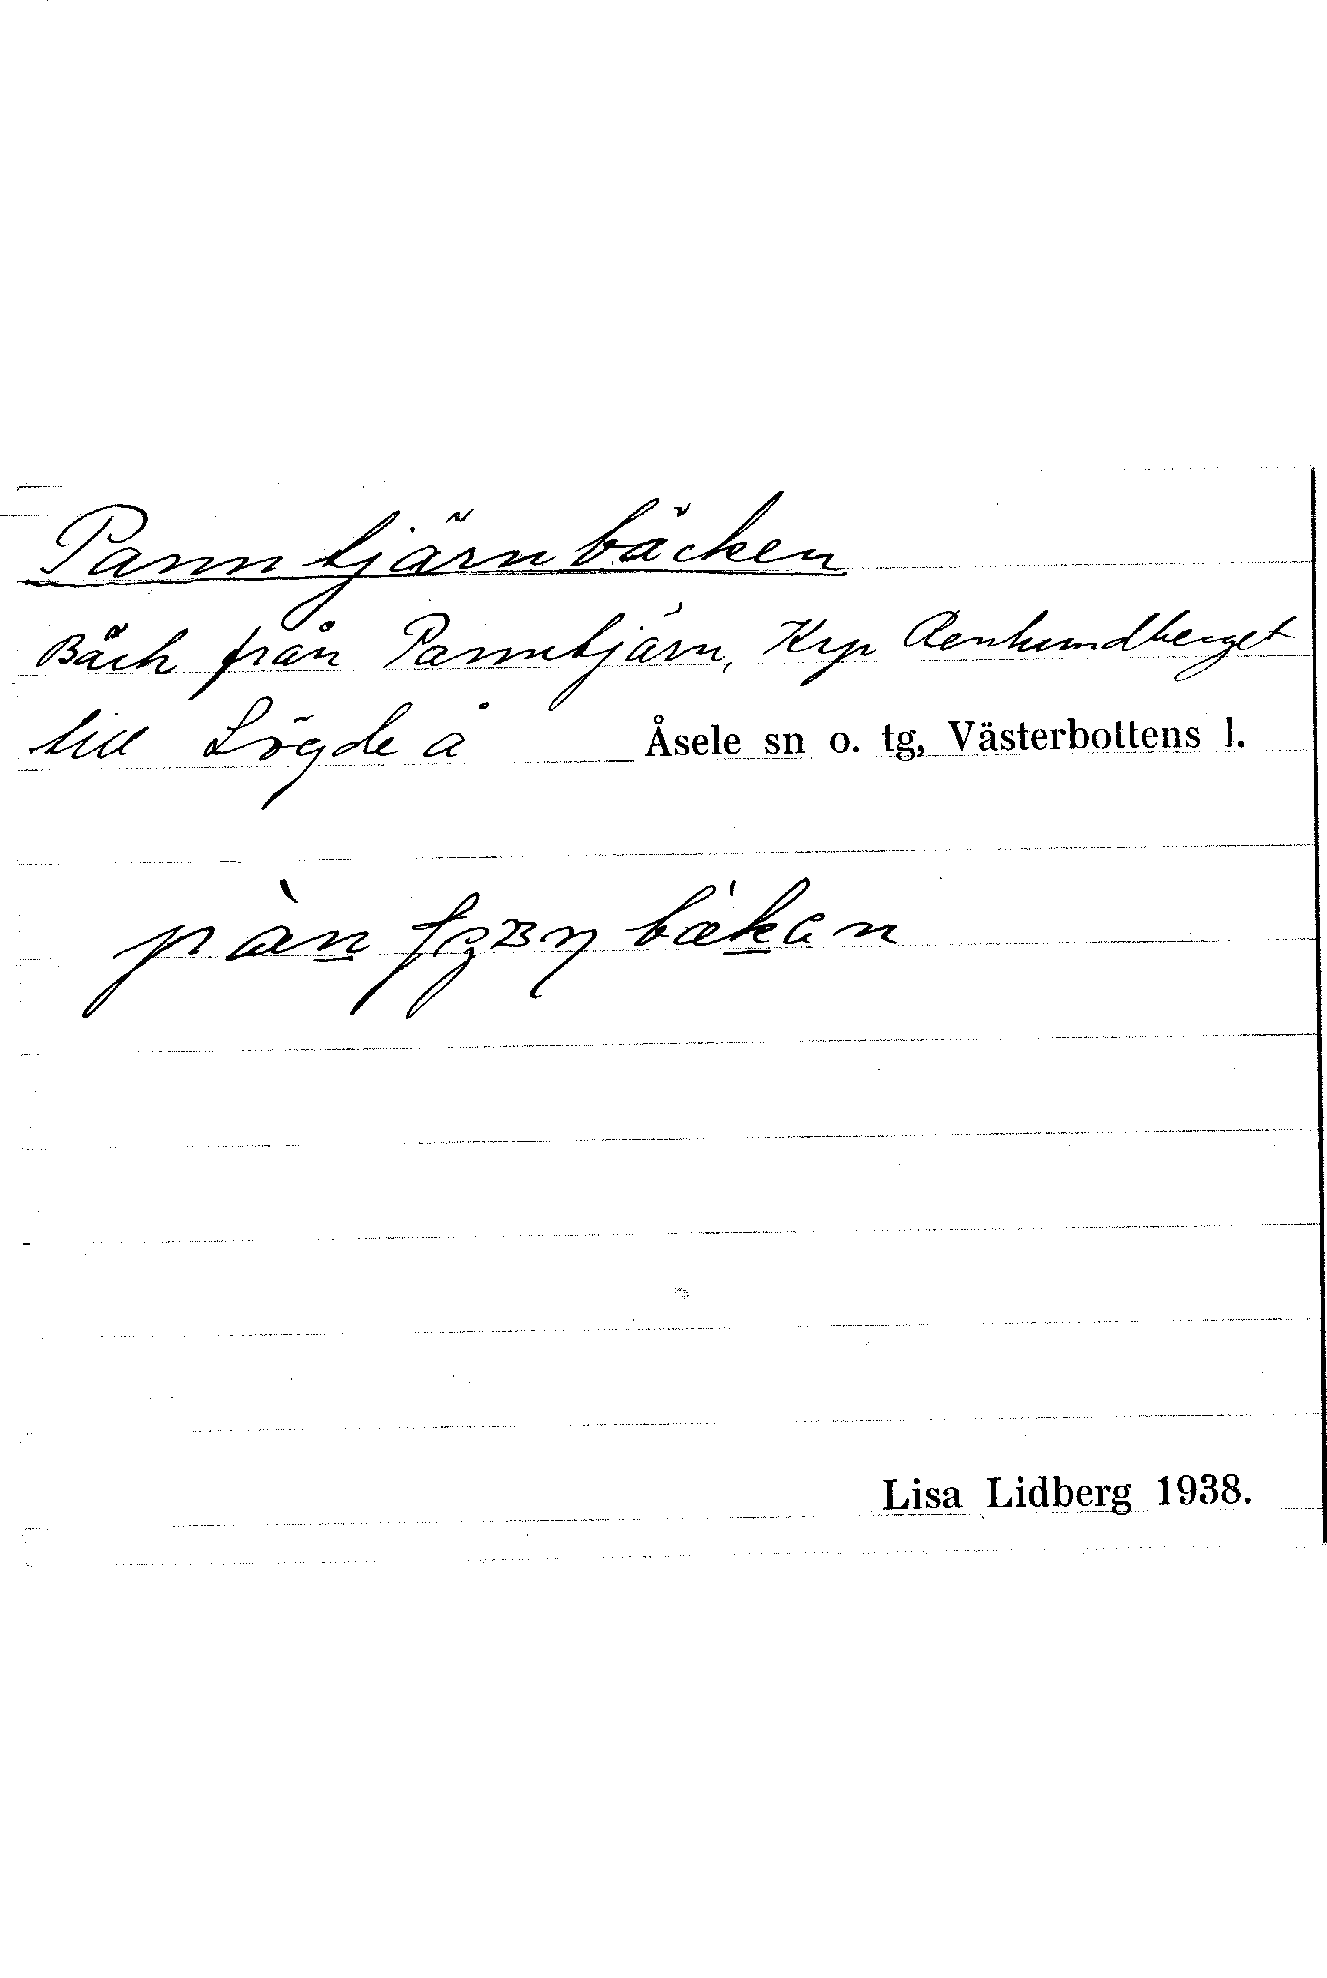 Panntjärnbäcken
Bäck från Panntjärn, Krp Renhundberget
till Lögde å Åsele sn o. tg, Västerbottens l.
Lisa Lidberg 1938.